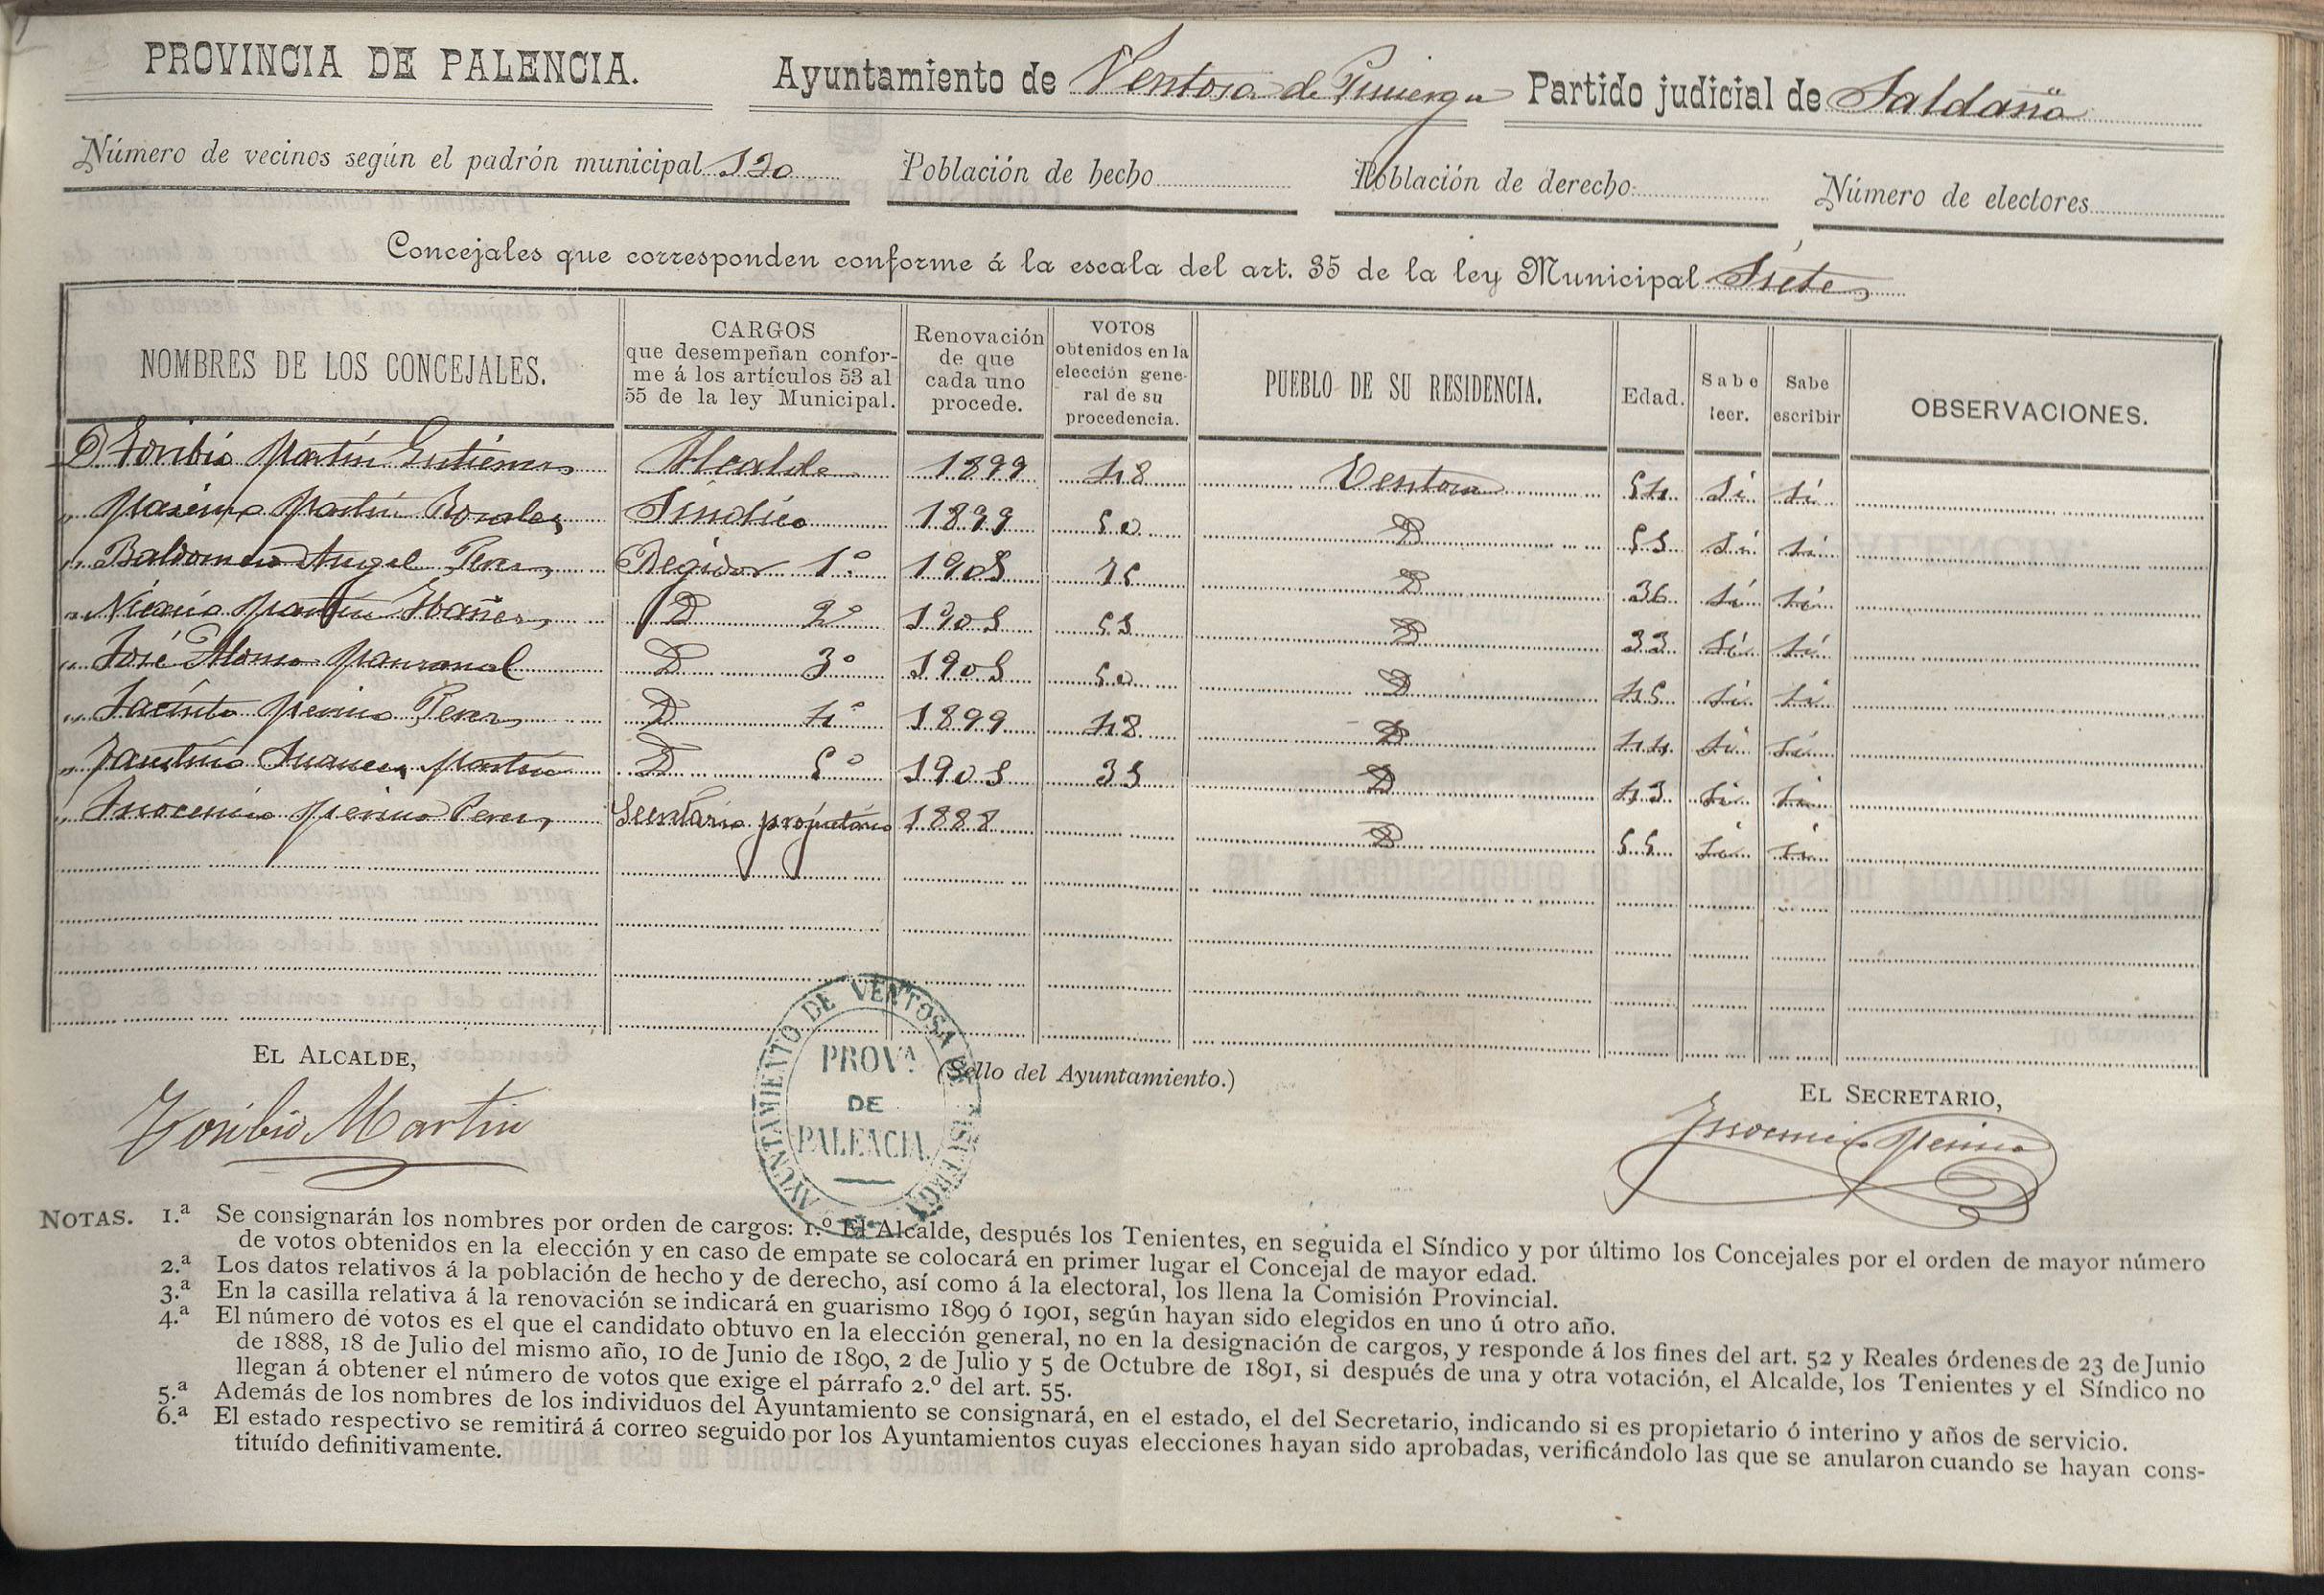 PROVINCIA DE PALENCIA. Ayuntamiento de Ventosa de Pisuerga Partido judicial de Saldaña
Número de vecinos según el padrón municipal 120 Población de hecho Población de derecho Número de electores
Concejales que corresponden conforme á la escala del art. 35 de la ley Municipal Siete
NOMBRES DE LOS CONCEJALES. CARGOS que desempeñan confor- me á los artículos 53 al 55 de la ley Municipal. Renovación de que cada uno procede. VOTOS obtenidos en la elección gene- ral de su procedencia. PUEBLO DE SU RESIDENCIA. Edad. Sabe leer. Sabe escribir OBSERVACIONES.
D Toribio Martín Gutiérrez Alcalde 1899 48 Ventosa 54 Si Si
" Martín Síndico 1899 50 D Si Si
" Baldomero Angel Perez Regidor 1º 1901 D 36 Si Si
" Martín Ibañez D 2º 1901 D 33 Si Si
" José Alonso D 3º 1901 50 D 45 Si Si
" Jacinto Merino Perez D 4º 1899 48 D 44 Si Si
" Faustino Martín D 5º 1901 D Si Si
" Inocencio Merino Perez Secretario propietario 1888 D 55 Si Si
EL ALCALDE,
Toribio Martin
AYUNTAMIENTO DE VENTOSA DE PISUERGA
PROVA
DE
PALENCIA
(Sello del Ayuntamiento.)
EL SECRETARIO,
Inocencio Merino
NOTAS. 1.ª Se consignarán los nombres por orden de cargos: 1.º El Alcalde, después los Tenientes, en seguida el Síndico y por último los Concejales por el orden de mayor número
de votos obtenidos en la elección y en caso de empate se colocará en primer lugar el Concejal de mayor edad.
2.ª Los datos relativos á la población de hecho y de derecho, así como á la electoral, los llena la Comisión Provincial.
3.ª En la casilla relativa á la renovación se indicará en guarismo 1899 ó 1901, según hayan sido elegidos en uno ú otro año.
4.ª El número de votos es el que el candidato obtuvo en la elección general, no en la designación de cargos, y responde á los fines del art. 52 y Reales órdenes de 23 de Junio
de 1888, 18 de Julio del mismo año, 10 de Junio de 1890, 2 de Julio y 5 de Octubre de 1891, si después de una y otra votación, el Alcalde, los Tenientes y el Síndico no
llegan á obtener el número de votos que exige el párrafo 2.º del art. 55.
5.ª Además de los nombres de los individuos del Ayuntamiento se consignará, en el estado, el del Secretario, indicando si es propietario ó interino y años de servicio.
6.ª El estado respectivo se remitirá á correo seguido por los Ayuntamientos cuyas elecciones hayan sido aprobadas, verificándolo las que se anularon cuando se hayan cons-
tituído definitivamente.